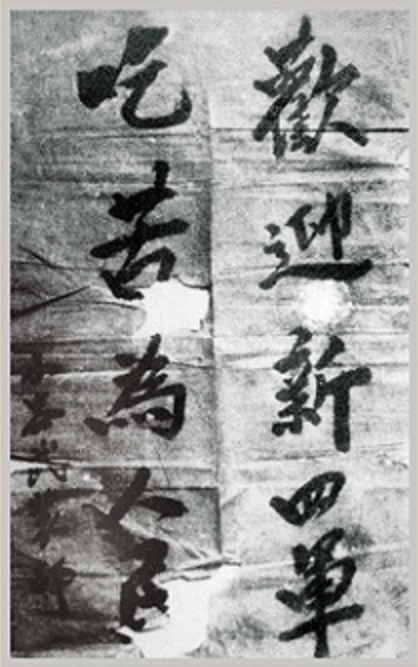 歡迎新四軍
吃苦為人民